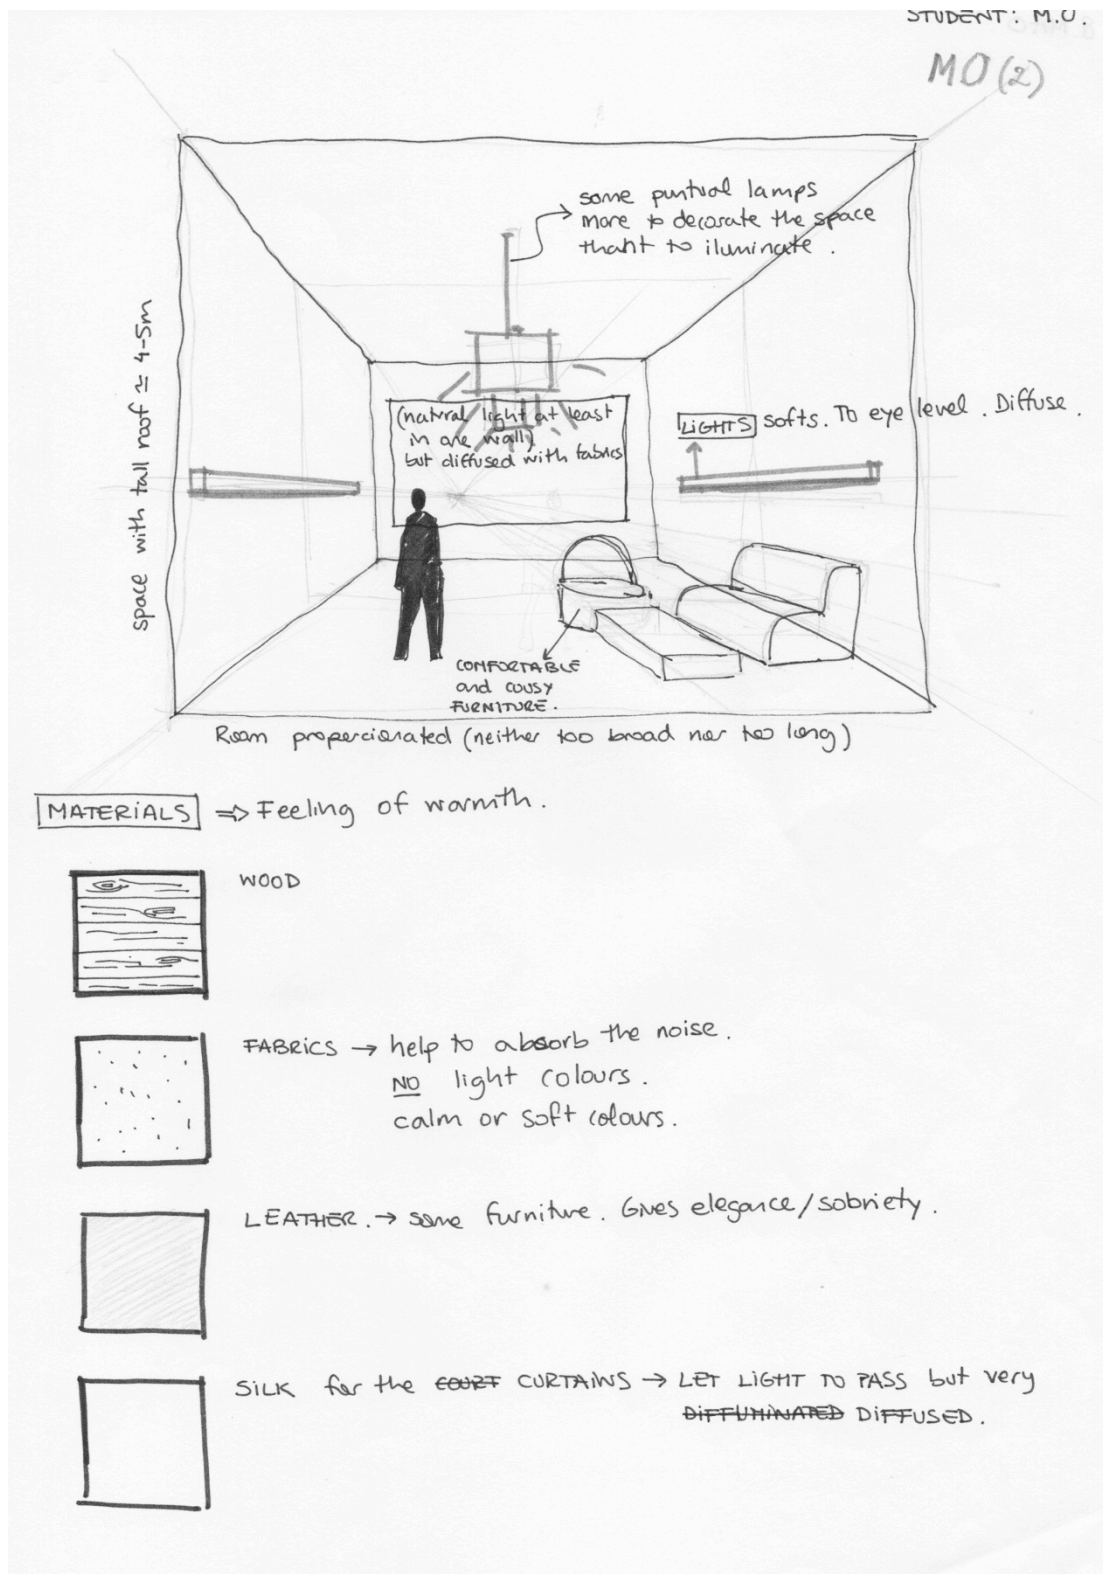 STUDENT: M.O.
MO (2)
some puntual lamps
more to decorate the space
thant to iluminate.
space with tall roof ≃ 4-5m
(natural light at least
in one wall)
but diffused with fabrics
LIGHTS softs. To eye level. Diffuse.
COMFORTABLE
and cousy
FURNITURE.
Room propercionated (neither too broad nor too long)
MATERIALS ⇒ Feeling of warmth.
WOOD
FABRICS → help to absorb the noise.
NO light colours.
calm or soft colours.
LEATHER. → some furniture. Gives elegance/sobriety.
SILK for the COURT CURTAINS → LET LIGHT TO PASS but very
DIFFUMINATED DIFFUSED.